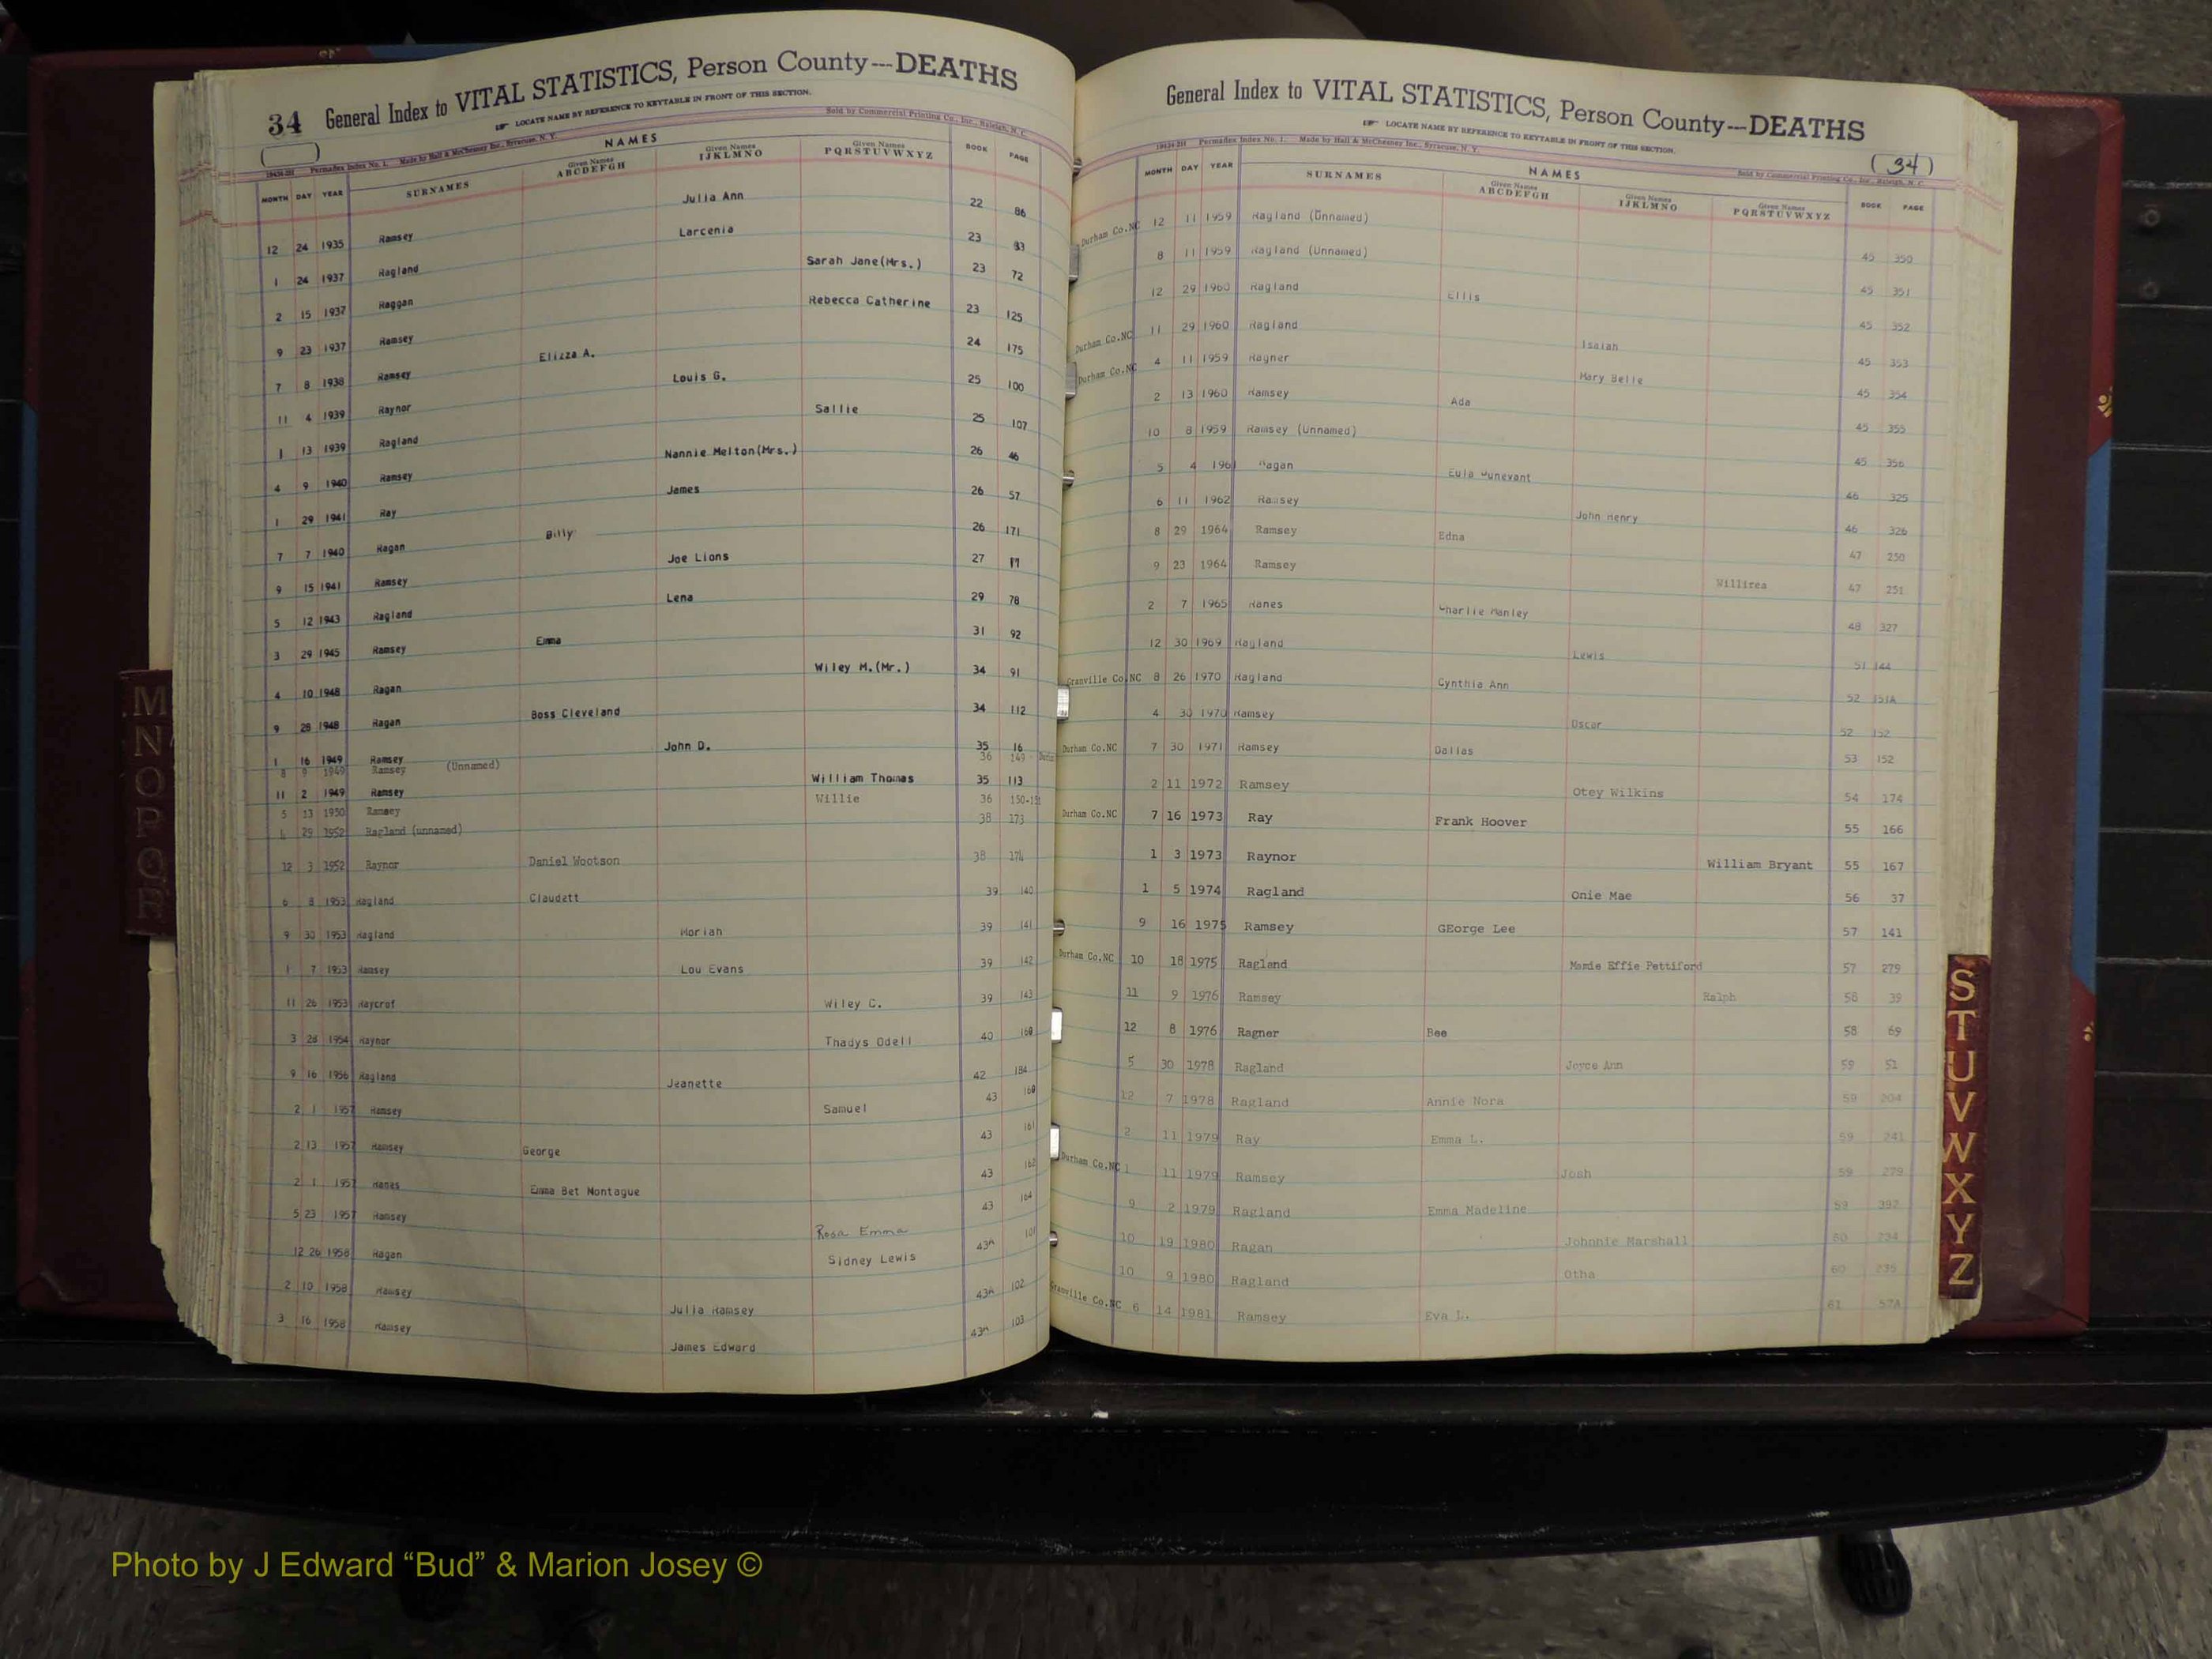 34 General Index to VITAL STATISTICS, Person County---DEATHS
☞ LOCATE NAME BY REFERENCE TO KEYTABLE IN FRONT OF THIS SECTION.
Permaflex Index No. 1. Made by Hall & McChesney Inc., Syracuse, N. Y. Sold by Commercial Printing Co., Inc., Raleigh, N. C.
NAMES
MONTH DAY YEAR SURNAMES Given Names ABCDEFGH Given Names IJKLMNO Given Names PQRSTUVWXYZ BOOK PAGE
12 24 1935 Ramsey Julia Ann 22 86
1 24 1937 Ragland Larcenia 23
2 15 1937 Raggan Sarah Jane(Mrs.) 23 72
9 23 1937 Ramsey Rebecca Catherine 23 125
7 8 1938 Ramsey Elizza A. 24 175
11 4 1939 Raynor Louis G. 25 100
1 13 1939 Ragland Sallie 25 107
4 9 1940 Ramsey Nannie Melton(Mrs.) 26 46
1 29 1941 Ray James 26 57
7 7 1940 Ragan Billy 26 171
9 15 1941 Ramsey Joe Lions 27
5 12 1943 Ragland Lena 29 78
3 29 1945 Ramsey Emma 31 92
4 10 1948 Ragan Wiley M.(Mr.) 34 91
9 28 1948 Ragan Boss Cleveland 34 112
1 16 1949 Ramsey John D. 35 16
8 9 1949 Ramsey (Unnamed) 36 149
11 2 1949 Ramsey William Thomas 35 113
5 13 1950 Ramsey Willie 36 150-151
29 1952 Ragland (unnamed) 38 173
12 3 1952 Raynor Daniel Wootson 38 174
6 8 1953 Ragland Claudett 39 140
9 30 1953 Ragland Moriah 39 141
1 7 1953 Ramsey Lou Evans 39 142
11 26 1953 Raycrof Wiley C. 39 143
3 28 1954 Raynor Thadys Odell 40 160
9 16 1956 Ragland Jeanette 42 184
2 1 1957 Ramsey Samuel 43 160
2 13 1957 Ramsey George 43 161
2 1 1957 Ranes Emma Bet Montague 43 162
5 23 1957 Ramsey Rosa Emma 43 164
12 26 1958 Ragan Sidney Lewis 43A 101
2 10 1958 Ramsey Julia Ramsey 43A 102
3 16 1958 Ramsey James Edward 43A 103
General Index to VITAL STATISTICS, Person County---DEATHS
☞ LOCATE NAME BY REFERENCE TO KEYTABLE IN FRONT OF THIS SECTION.
(34)
Permaflex Index No. 1. Made by Hall & McChesney Inc., Syracuse, N. Y. Sold by Commercial Printing Co., Inc., Raleigh, N. C.
NAMES
MONTH DAY YEAR SURNAMES Given Names ABCDEFGH Given Names IJKLMNO Given Names PQRSTUVWXYZ BOOK PAGE
Durham Co.NC 12 11 1959 Ragland (Unnamed) 45 350
8 11 1959 Ragland (Unnamed) 45 351
12 29 1960 Ragland Ellis 45 352
Durham Co.NC 11 29 1960 Ragland Isaiah 45 353
Durham Co.NC 4 11 1959 Rayner Mary Belle 45 354
2 13 1960 Ramsey Ada 45 355
10 8 1959 Ramsey (Unnamed) 45 356
5 4 1961 Ragan Eula Dunevant 46 325
6 11 1962 Ramsey John Henry 46 326
8 29 1964 Ramsey Edna 47 250
9 23 1964 Ramsey Willirea 47 251
2 7 1965 Ranes Charlie Manley 48 327
12 30 1969 Ragland Lewis 51 144
Granville Co.NC 8 26 1970 Ragland Cynthia Ann 52 151A
4 30 1970 Ramsey Oscar 52 152
Durham Co.NC 7 30 1971 Ramsey Dallas 53 152
2 11 1972 Ramsey Otey Wilkins 54 174
Durham Co.NC 7 16 1973 Ray Frank Hoover 55 166
1 3 1973 Raynor William Bryant 55 167
1 5 1974 Ragland Onie Mae 56 37
9 16 1975 Ramsey GEorge Lee 57 141
Durham Co.NC 10 18 1975 Ragland Mamie Effie Pettiford 57 279
11 9 1976 Ramsey Ralph 58 39
12 8 1976 Ragner Bee 58 69
5 30 1978 Ragland Joyce Ann 59 51
12 7 1978 Ragland Annie Nora 59 204
2 11 1979 Ray Emma L. 59 241
Durham Co.NC 1 11 1979 Ramsey Josh 59 279
9 2 1979 Ragland Emma Madeline 59 392
10 19 1980 Ragan Johnnie Marshall 60 234
10 9 1980 Ragland Otha 60 235
Granville Co.NC 6 14 1981 Ramsey Eva L. 61 57A
M
N
O
P
Q
R
S
T
U
V
W
X
Y
Z
Photo by J Edward “Bud” & Marion Josey ©